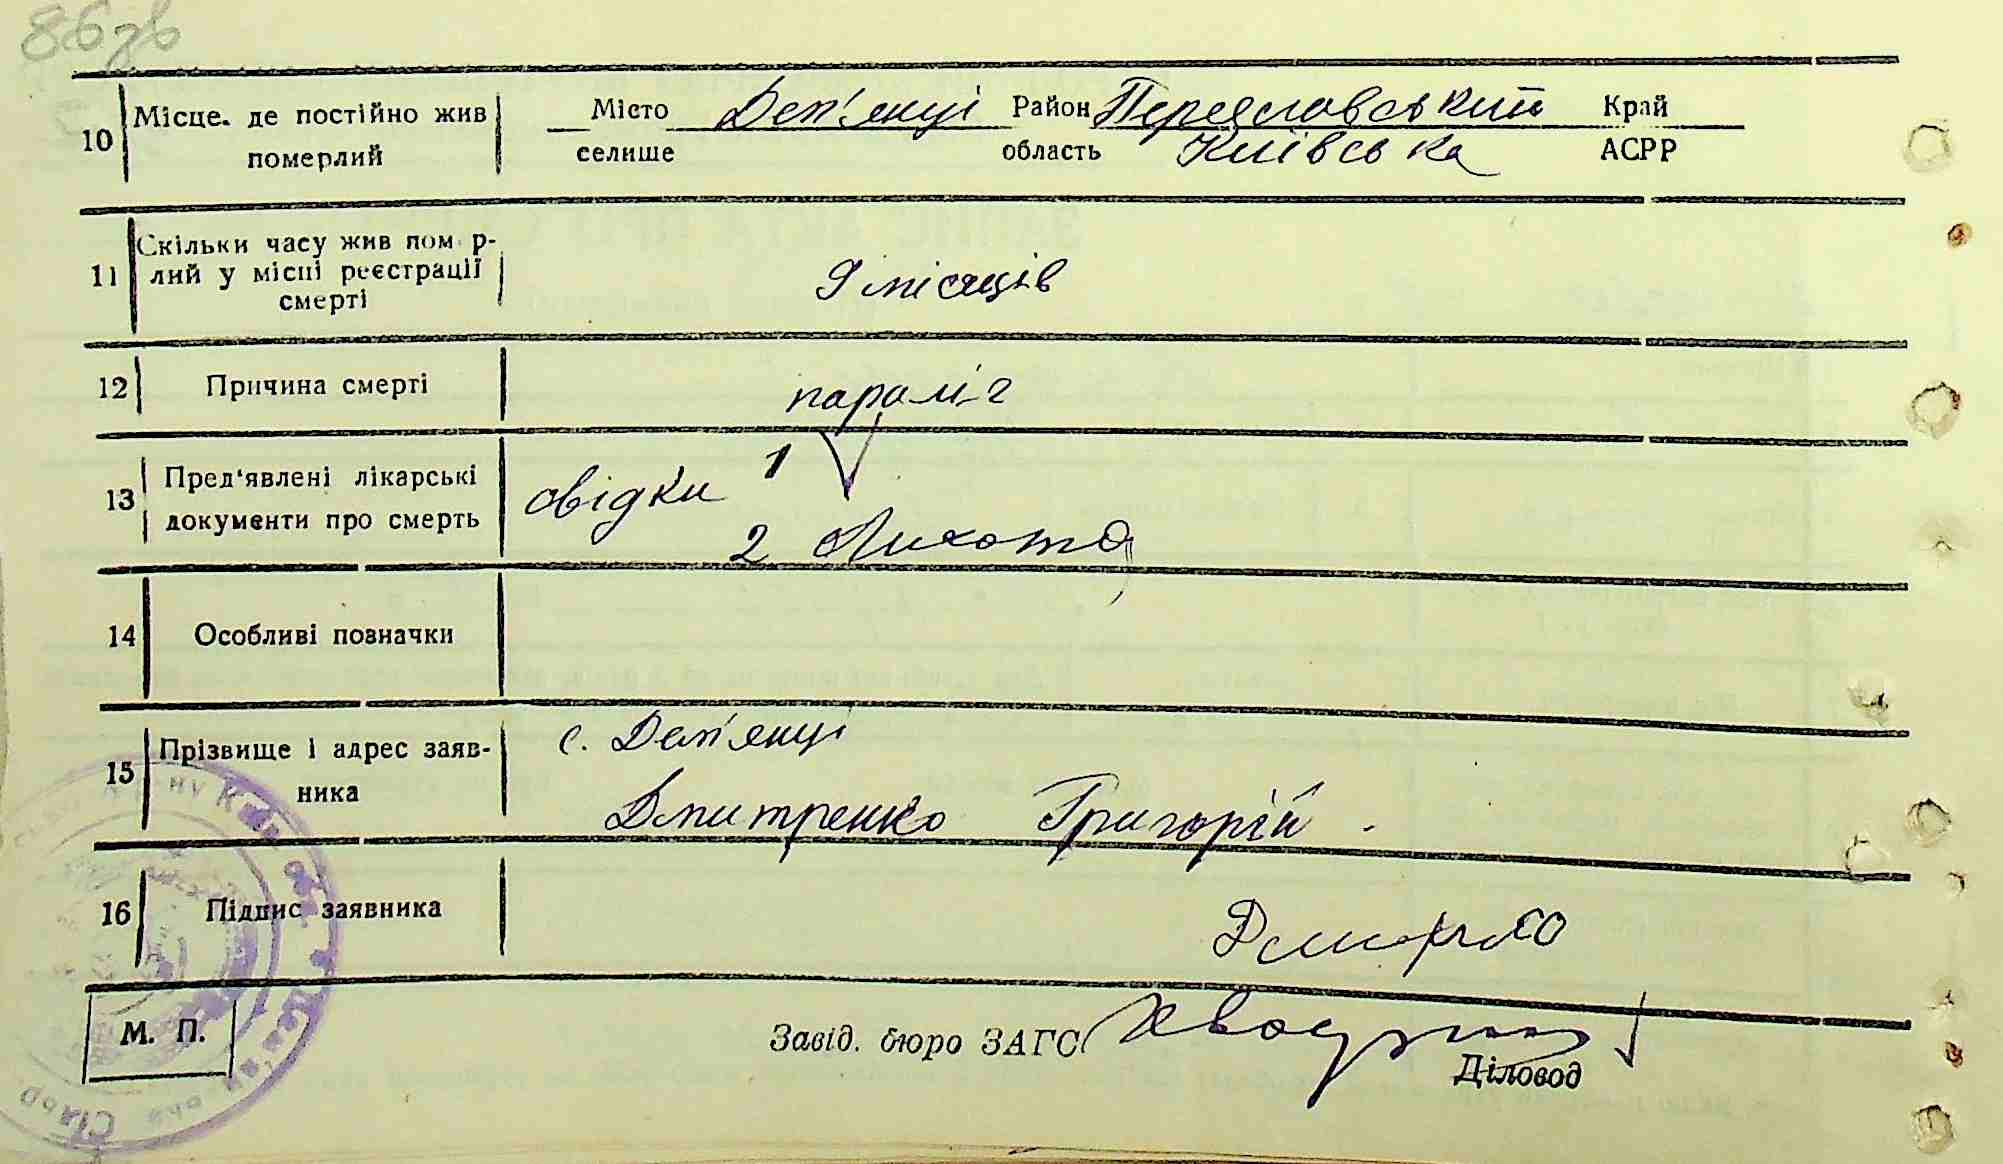 86 зв
10 Місце. де постійно жив Місто Дем'янці Район Переяславський Край
померлий селище область Київська АСРР
Скільки часу жив помер-
11 лий у місці реєстрації 9 місяців
смерті
12 Причина смерті параліч
Пред'явлені лікарські свідки 1
13 документи про смерть 2 Лихота
14 Особливі позначки
15 Прізвище і адрес заяв- с. Дем'янці
ника Дмитренко Григорій.
16 Підпис заявника
М. П. Завід. бюро ЗАГС
Діловод